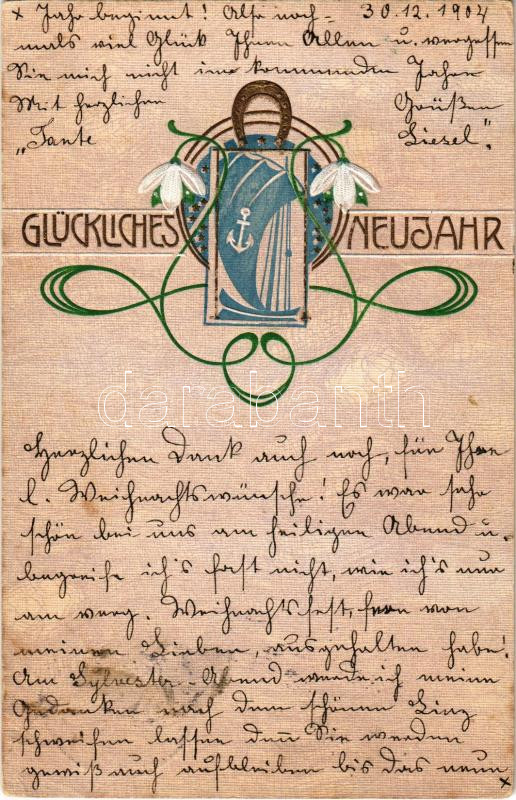 x Jahr beginnt! Also noch- 30.12.1904
mals viel Glück Ihnen Allen u. vergessen
Sie mich nicht im kommenden Jahre
Mit herzlichen Grüßen
„Tante Liesel."
GLÜCKLICHES NEUJAHR
darabanth
Herzlichen Dank auch noch, für Ihre
l. Weihnachtswünsche! Es war sehr
schön bei uns am heiligen Abend u.
begreife ich's fast nicht, wie ich's nur
am verg. Weihnachtsfest, fern von
meinen Lieben, ausgehalten habe!
Am Sylvester-Abend werde ich meine
Gedanken nach dem schönen Linz
schweifen lassen denn Sie werden
gewiß auch aufbleiben bis das neue
x